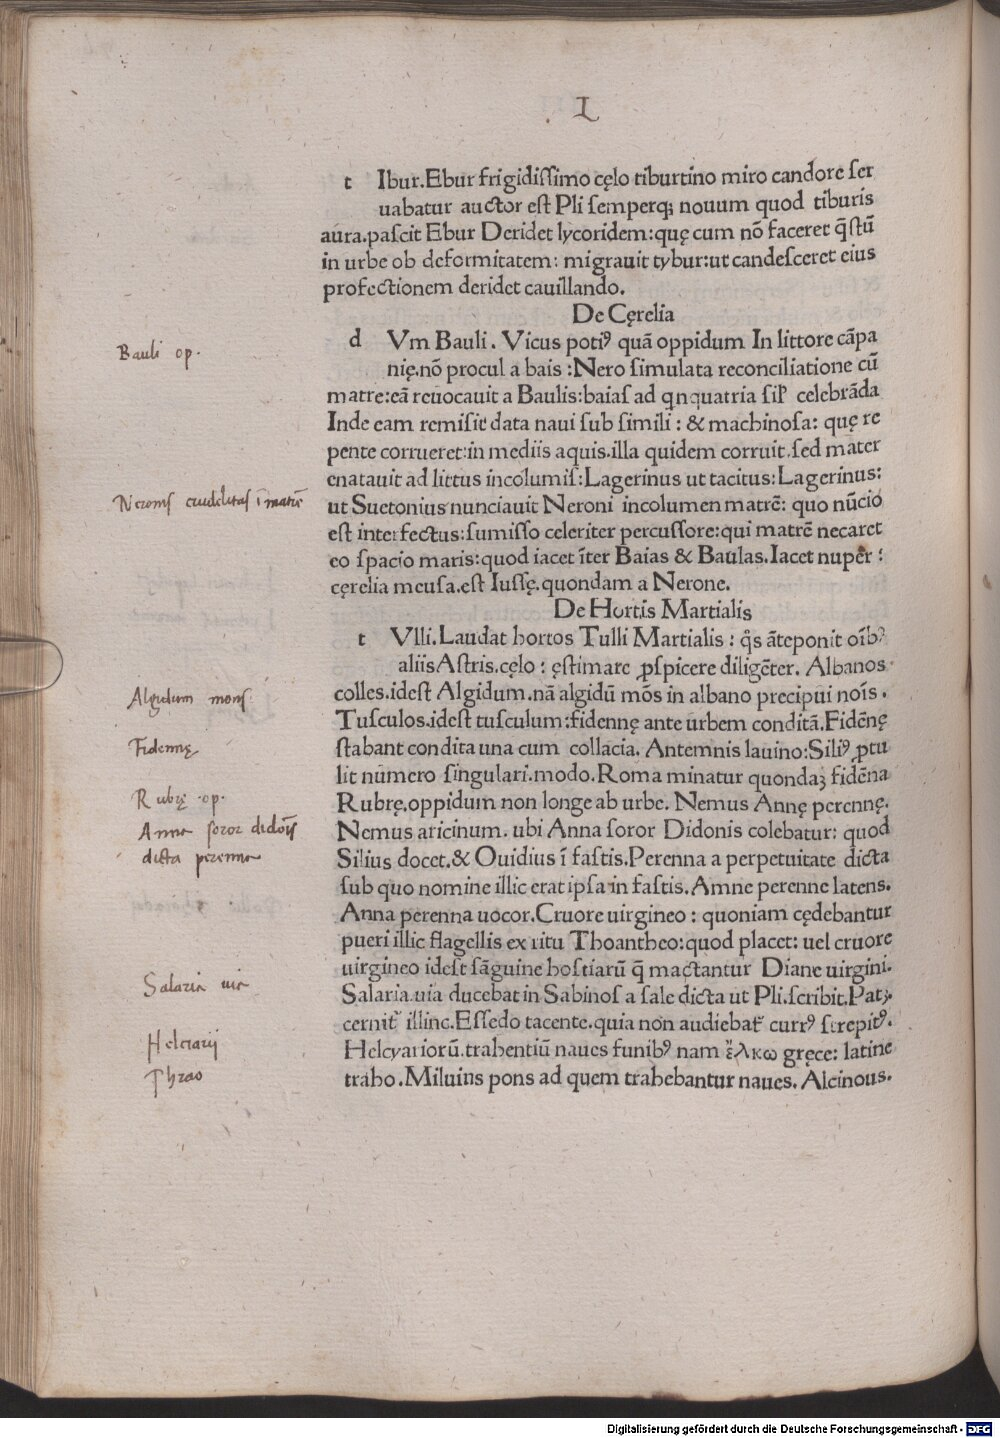 I
t Ibur.Ebur frigidiſſimo cęlo tiburtino miro candore ſer
uabatur auctor eſt Pli ſemperqꝫ nouum quod tiburis
aura.paſcit Ebur Deridet lycoridem:quę cum nō faceret q̄ſtū
in urbe ob deformitatem: migrauit tybur:ut candeſceret eius
profectionem deridet cauillando.
De Cęrelia
d Vm Bauli. Vicus potiꝰ quā oppidum In littore cāpa
Bauli op.
nię.nō procul a bais :Nero ſimulata reconciliatione cū
matre:eā reuocauit a Baulis:baias ad qnquatria ſil' celebrāda
Inde eam remiſit data naui ſub ſimili : & machinoſa: quę re
pente corrueret:in mediis aquis.illa quidem corruit.ſed mater
enatauit ad littus incolumiſ:Lagerinus ut tacitus:Lagerinus:
Neronis crudelitas ī matrē
ut Suetonius nunciauit Neroni incolumen matrē: quo nūcio
eſt interfectus:ſumiſſo celeriter percuſſore:qui matrē necaret
eo ſpacio maris:quod iacet īter Baias & Baulas.Iacet nuper :
cęrelia meuſa.eſt Iuſſę.quondam a Nerone.
De Hortis Martialis
t Vlli.Laudat hortos Tulli Martialis : q̄s āteponit oībꝰ
aliis Aſtris.cęlo : ęſtimare ꝓſpicere diligēter. Albanos
Algidum mons
colles.ideſt Algidum.nā algidū mōs in albano precipui noīs.
Tuſculos.ideſt tuſculum:fidennę ante urbem conditā.Fidēnę
Fidennę
ſtabant condita una cum collacia. Antemnis lauino:Siliꝰ ꝓtu
lit numero ſingulari.modo.Roma minatur quondaꝫ fidēna
Rubrę op.
Rubrę.oppidum non longe ab urbe. Nemus Annę perennę.
Anna soror didoīs
Nemus aricinum. ubi Anna ſoror Didonis colebatur: quod
dicta perenna
Silius docet.& Ouidius ī faſtis.Perenna a perpetuitate dicta
ſub quo nomine illic erat ipſa in faſtis.Amne perenne latens.
Anna perenna uocor.Cruore uirgineo : quoniam cędebantur
pueri illic flagellis ex ritu Thoantheo:quod placet: uel cruore
uirgineo ideſt ſāguine hoſtiarū q̄ mactantur Diane uirgini.
Salaria via
Salaria.uia ducebat in Sabinoſ a ſale dicta ut Pli.ſcribit.Patꝫ.
cernit̄ illinc.Eſſedo tacente.quia non audiebat̄ currꝰ ſtrepitꝰ.
Helciarij
Helcyariorū.trahentiū naues funibꝰ nam ἕλκω gręce: latine
Thrao
traho.Miluius pons ad quem trahebantur naues. Alcinous.
Digitalisierung gefördert durch die Deutsche Forschungsgemeinschaft - DFG